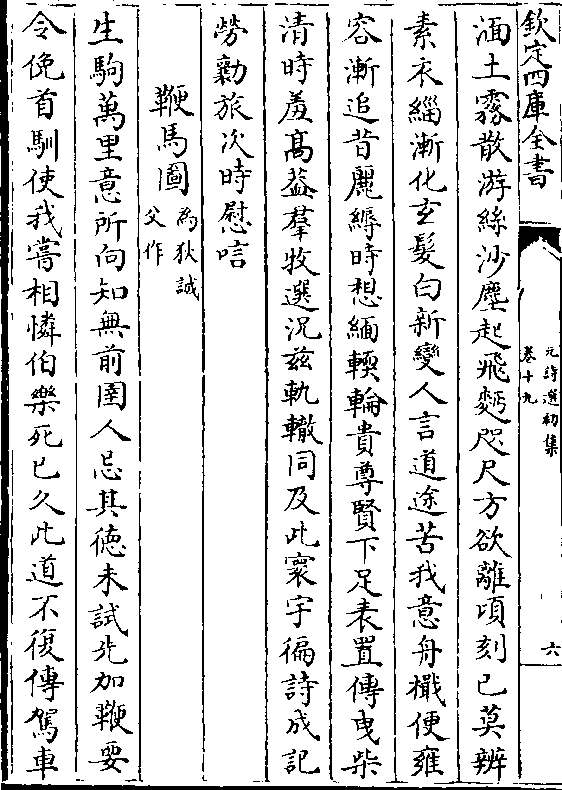 欽定四庫全書
元詩選初集
卷十九
六
湎土霧散游絲沙塵起飛麪咫尺方欲離頃刻已莫辨
素衣緇漸化玄髮白新變人言道途苦我意舟檝便雍
容漸追昔麗縟時想緬輭輪貴尊賢下足表置傳曳柴
清時羞髙葢羣牧選況兹軌轍同及此寰宇徧詩成記
勞勩旅次時慰唁
鞭馬圖為狄誠父作
生駒萬里意所向知無前圉人忌其徳未試先加鞭要
令俛首馴使我嘗相憐伯樂死已久此道不復傳駕車